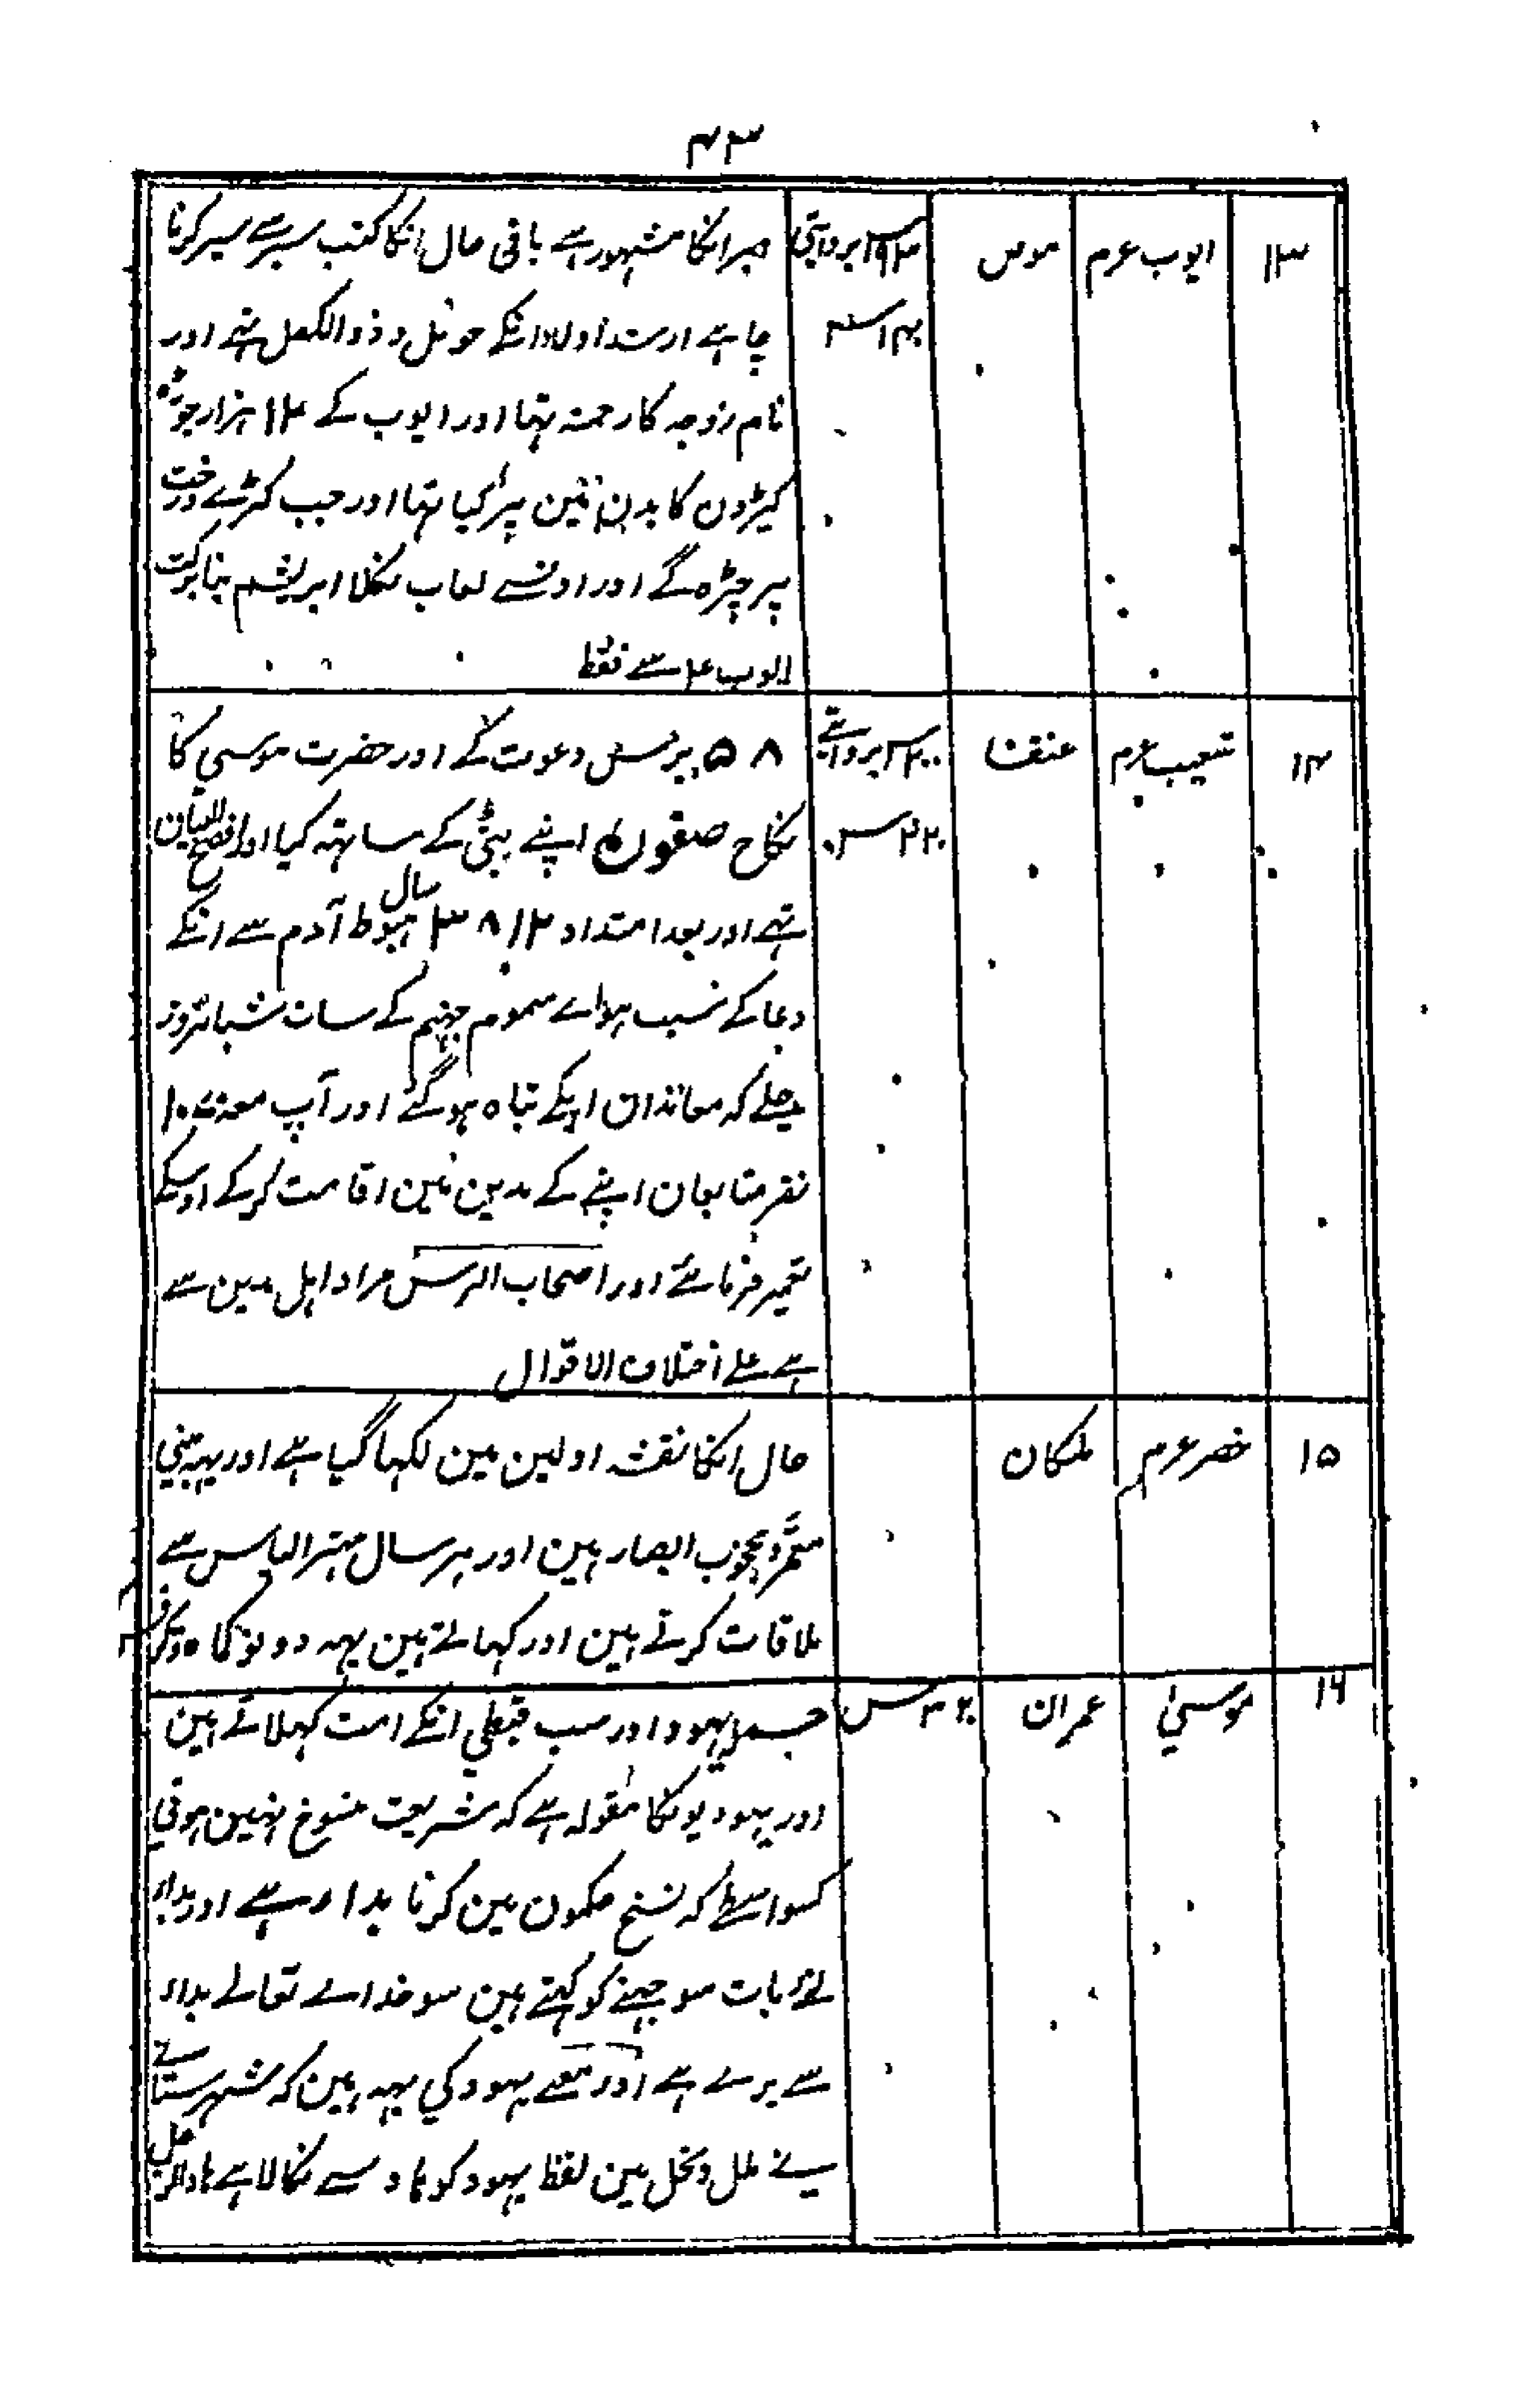 ۴۳
۱۳ ایوب عم موص ۹۳ س بروایتی صبر انکا مشہور ہے باقی حال انکا کتب سیر سے سیر کرنا
۱۴۰ س چاہے ارشد اولاد انکے حومل و ذوالکفل تہے اور
نام زوجہ کا رحمۃ تہا اور ایوب کے ۱۲ ہزار جوڑہ
کیڑون کا بدن مین پڑ گیا تہا اور جب کڑے درخت
پر چڑہ گے اور اونسے لعاب نکلا ابریشم بنا برکت
ایوب ع م سے فقط
۱۴ شعیب عم عنقا س بروایتے ۵۸ برس دعوت کے اور حضرت موسی کا
۲۲۰ س نکاح صفورا اپنے بیٹی کے ساتہہ کیا اور افصح اللسان
تہے اور بعد امتداد ۳۸۱۲ سال ہبوط آدم سے انکے
دعا کے سبب ہواے سموم جہنم کے سات شبانروز
چلے کہ معاندان اپکے تباہ ہوگئے اور آپ معہ
نفر متابعان اپنے کے مدین مین اقامت کرکے اوسکے
تعمیر فرمائے اور اصحاب الرس مراد اہل مدین سے
ہے علے اختلاف الاقوال
۱۵ خضر عم ملکان حال انکا نقشہ اولین مین لکہا گیا ہے اور یہہ
معمر و محجوب ابصار ہین اور ہر سال مہتر الیاس سے
ملاقات کرتے ہین اور کہاتے ہین یہہ دونو
۱۶ موسیٰ عمران س جملہ یہود اور سب قبطی انکے امت کہلاتے ہین
اور یہودیونکا مقولہ ہے کہ شریعت منسوخ نہین ہوتی
کسواسطے کہ نسخ حکمون مین کرنا بداء ہے اور بداء
نئے بات سوجہنے کو کہتے ہین سو خداے تعالے بداء
سے برے ہے اور معنے یہود کی یہہ ہین کہ شہرستانے
نے ملل و نحل مین لفظ یہود کو ہاد سے نکالا ہے ہاد